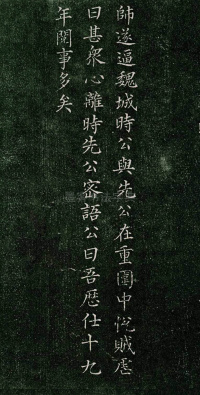 師遂逼魏城時公與先公在重圍中從賊虐
日甚衆心離時先公密語公曰吾歷仕十九
年閱事多矣